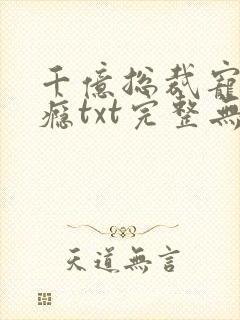 千億總裁寵
癮txt完整無
天道無言